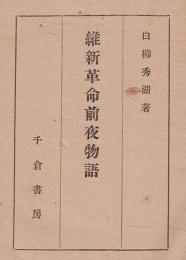 白柳秀湖著
維新革命前夜物語
千倉書房